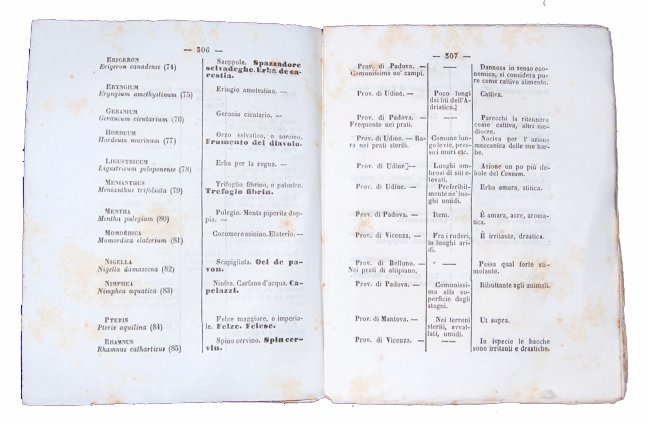 — 306 —
ERIGERON
Erigeron canadense (74)
Saeppole. Spazzadore
selvadeghe. Erba de ca-
restia.
ERYNGIUM
Eryngium amethystinum (75)
Eriogio ametestino. —
GERANIUM
Geranium cicutarium (76)
Geranio cicutario. —
HORDEUM
Hordeum murinum (77)
Orzo selvatico, o sorcino.
Fromento del diavolo.
LIGUSTRICUM
Ligustricum peloponense (78)
Erba per la rogna. —
MENIANTHUS
Menianthus trifoliata (79)
Trifoglio fibrino, o palustre.
Trefogio fibrin.
MENTHA
Mentha pulegium (80)
Pulegio. Menta piperita dop-
pia. —
MOMORDICA
Momordica elaterium (81)
Cocomero asinino. Elaterio. —
NIGELLA
Nigella damascena (82)
Scapigliata. Oci de pa-
von.
NIMPHEA
Nimphea aquatica (83)
Ninfea. Carfano d'acqua. Ca-
pelazzi.
PTERIS
Pteris aquilina (84)
Felce maggiore, o imperia-
le. Felze. Felese.
RHAMNUS
Rhamnus catharticus (85)
Spino cervino. Spin cer-
vin.
— 307 —
Prov. di Padova. —
Comunissima ne' campi.
——
Dannosa in senso eco-
nomico, si considera pu-
re come cattivo alimento.
Prov. di Udine. —
Poco lungi
dei liti dell'A-
driatico.]
Cattiva.
Prov. di Padova. —
Frequente nei prati.
——
Parecchi la ritennero
come cattiva, altri me-
diocre.
Prov. di Udine. — Ra-
ra nei prati sterili.
Comune lun-
go le vie, pres-
so i muri etc.
Nociva per l' azione
meccanica delle sue bar-
be.
Prov. di Udine. —
Luoghi om-
brosi di siti e-
levati.
Azione un po più de-
bole del Conium.
Prov. di Udine. —
Preferibil-
mente ne' luo-
ghi umidi.
Erba amara, stitica.
Prov. di Padova. —
Item.
È amara, acre, aroma-
tica.
Prov. di Vicenza. —
Fra i ruderi,
in luoghi ari-
di.
È irritante, drastica.
Prov. di Belluno. —
Nei prati di altipiano.
——
Passa qual forte sti-
molante.
Prov. di Padova. —
Comunissi-
ma alla su-
perficie degli
stagni.
Ributtante agli animali.
Prov. di Mantova. —
Nei terreni
sterili, avval-
lati, umidi.
Ut supra.
Prov. di Vicenza. —
——
In ispecie le bacche
sono irritanti e drastiche.